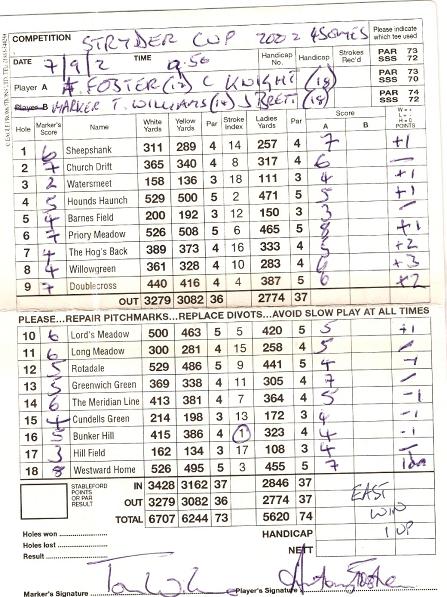 COMPETITION STRYDER CUP 2002 4SOMES
Please indicate which tee used
DATE 7/9/2 TIME 9.56 Handicap No. Handicap Strokes Rec'd PAR 73 SSS 72
Player A A. FOSTER (12) C KNIGHT (18) PAR 73 SSS 70
Player B MARKER T. WILLIAMS (14) J BRETT (18) PAR 74 SSS 72
Hole Marker's Score Name White Yards Yellow Yards Par Stroke Index Ladies Yards Par Score A B W = + L = - H = O POINTS
1 6 Sheepshank 311 289 4 14 257 4 7 +1
2 7 Church Drift 365 340 4 8 317 4 6 –
3 2 Watersmeet 158 136 3 18 111 3 4 +1
4 5 Hounds Haunch 529 500 5 2 471 5 5 +1
5 4 Barnes Field 200 192 3 12 150 3 3 –
6 7 Priory Meadow 526 508 5 6 465 5 8 +1
7 4 The Hog's Back 389 373 4 16 333 4 5 +2
8 4 Willowgreen 361 328 4 10 283 4 6 +3
9 7 Doublecross 440 416 4 4 387 5 6 +2
OUT 3279 3082 36 2774 37
PLEASE...REPAIR PITCHMARKS...REPLACE DIVOTS...AVOID SLOW PLAY AT ALL TIMES
10 6 Lord's Meadow 500 463 5 5 420 5 5 +1
11 6 Long Meadow 300 281 4 15 258 4 5 –
12 5 Rotadale 529 486 5 9 441 5 4 -1
13 5 Greenwich Green 369 338 4 11 305 4 7 –
14 6 The Meridian Line 413 381 4 7 364 4 5 -1
15 4 Cundells Green 214 198 3 13 172 3 4 -1
16 5 Bunker Hill 415 386 4 1 323 4 4 -1
17 3 Hill Field 162 134 3 17 108 3 4 –
18 8 Westward Home 526 495 5 3 455 5 7
STABLEFORD POINTS OR PAR RESULT
IN 3428 3162 37 2846 37
OUT 3279 3082 36 2774 37
TOTAL 6707 6244 73 5620 74
EAST
WIN
1 UP
HANDICAP
NETT
Holes won
Holes lost
Result
Marker's Signature Player's Signature